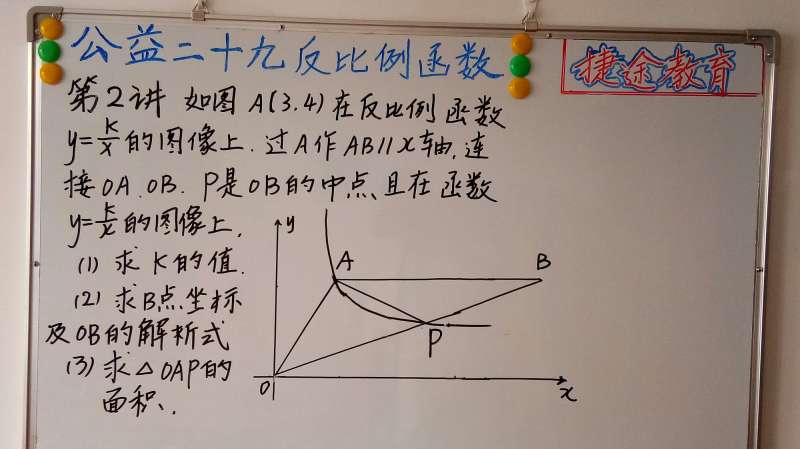 公益二十九反比例函数
捷途教育
第2讲 如图 A(3.4)在反比例函数
y=k/x的图像上.过A作AB//x轴,连
接OA.OB.P是OB的中点且在函数
y=k/x的图像上,
(1) 求K的值.
(2) 求B点坐标
及OB的解析式
(3)求△OAP的
面积.
y
A
B
P
O
x